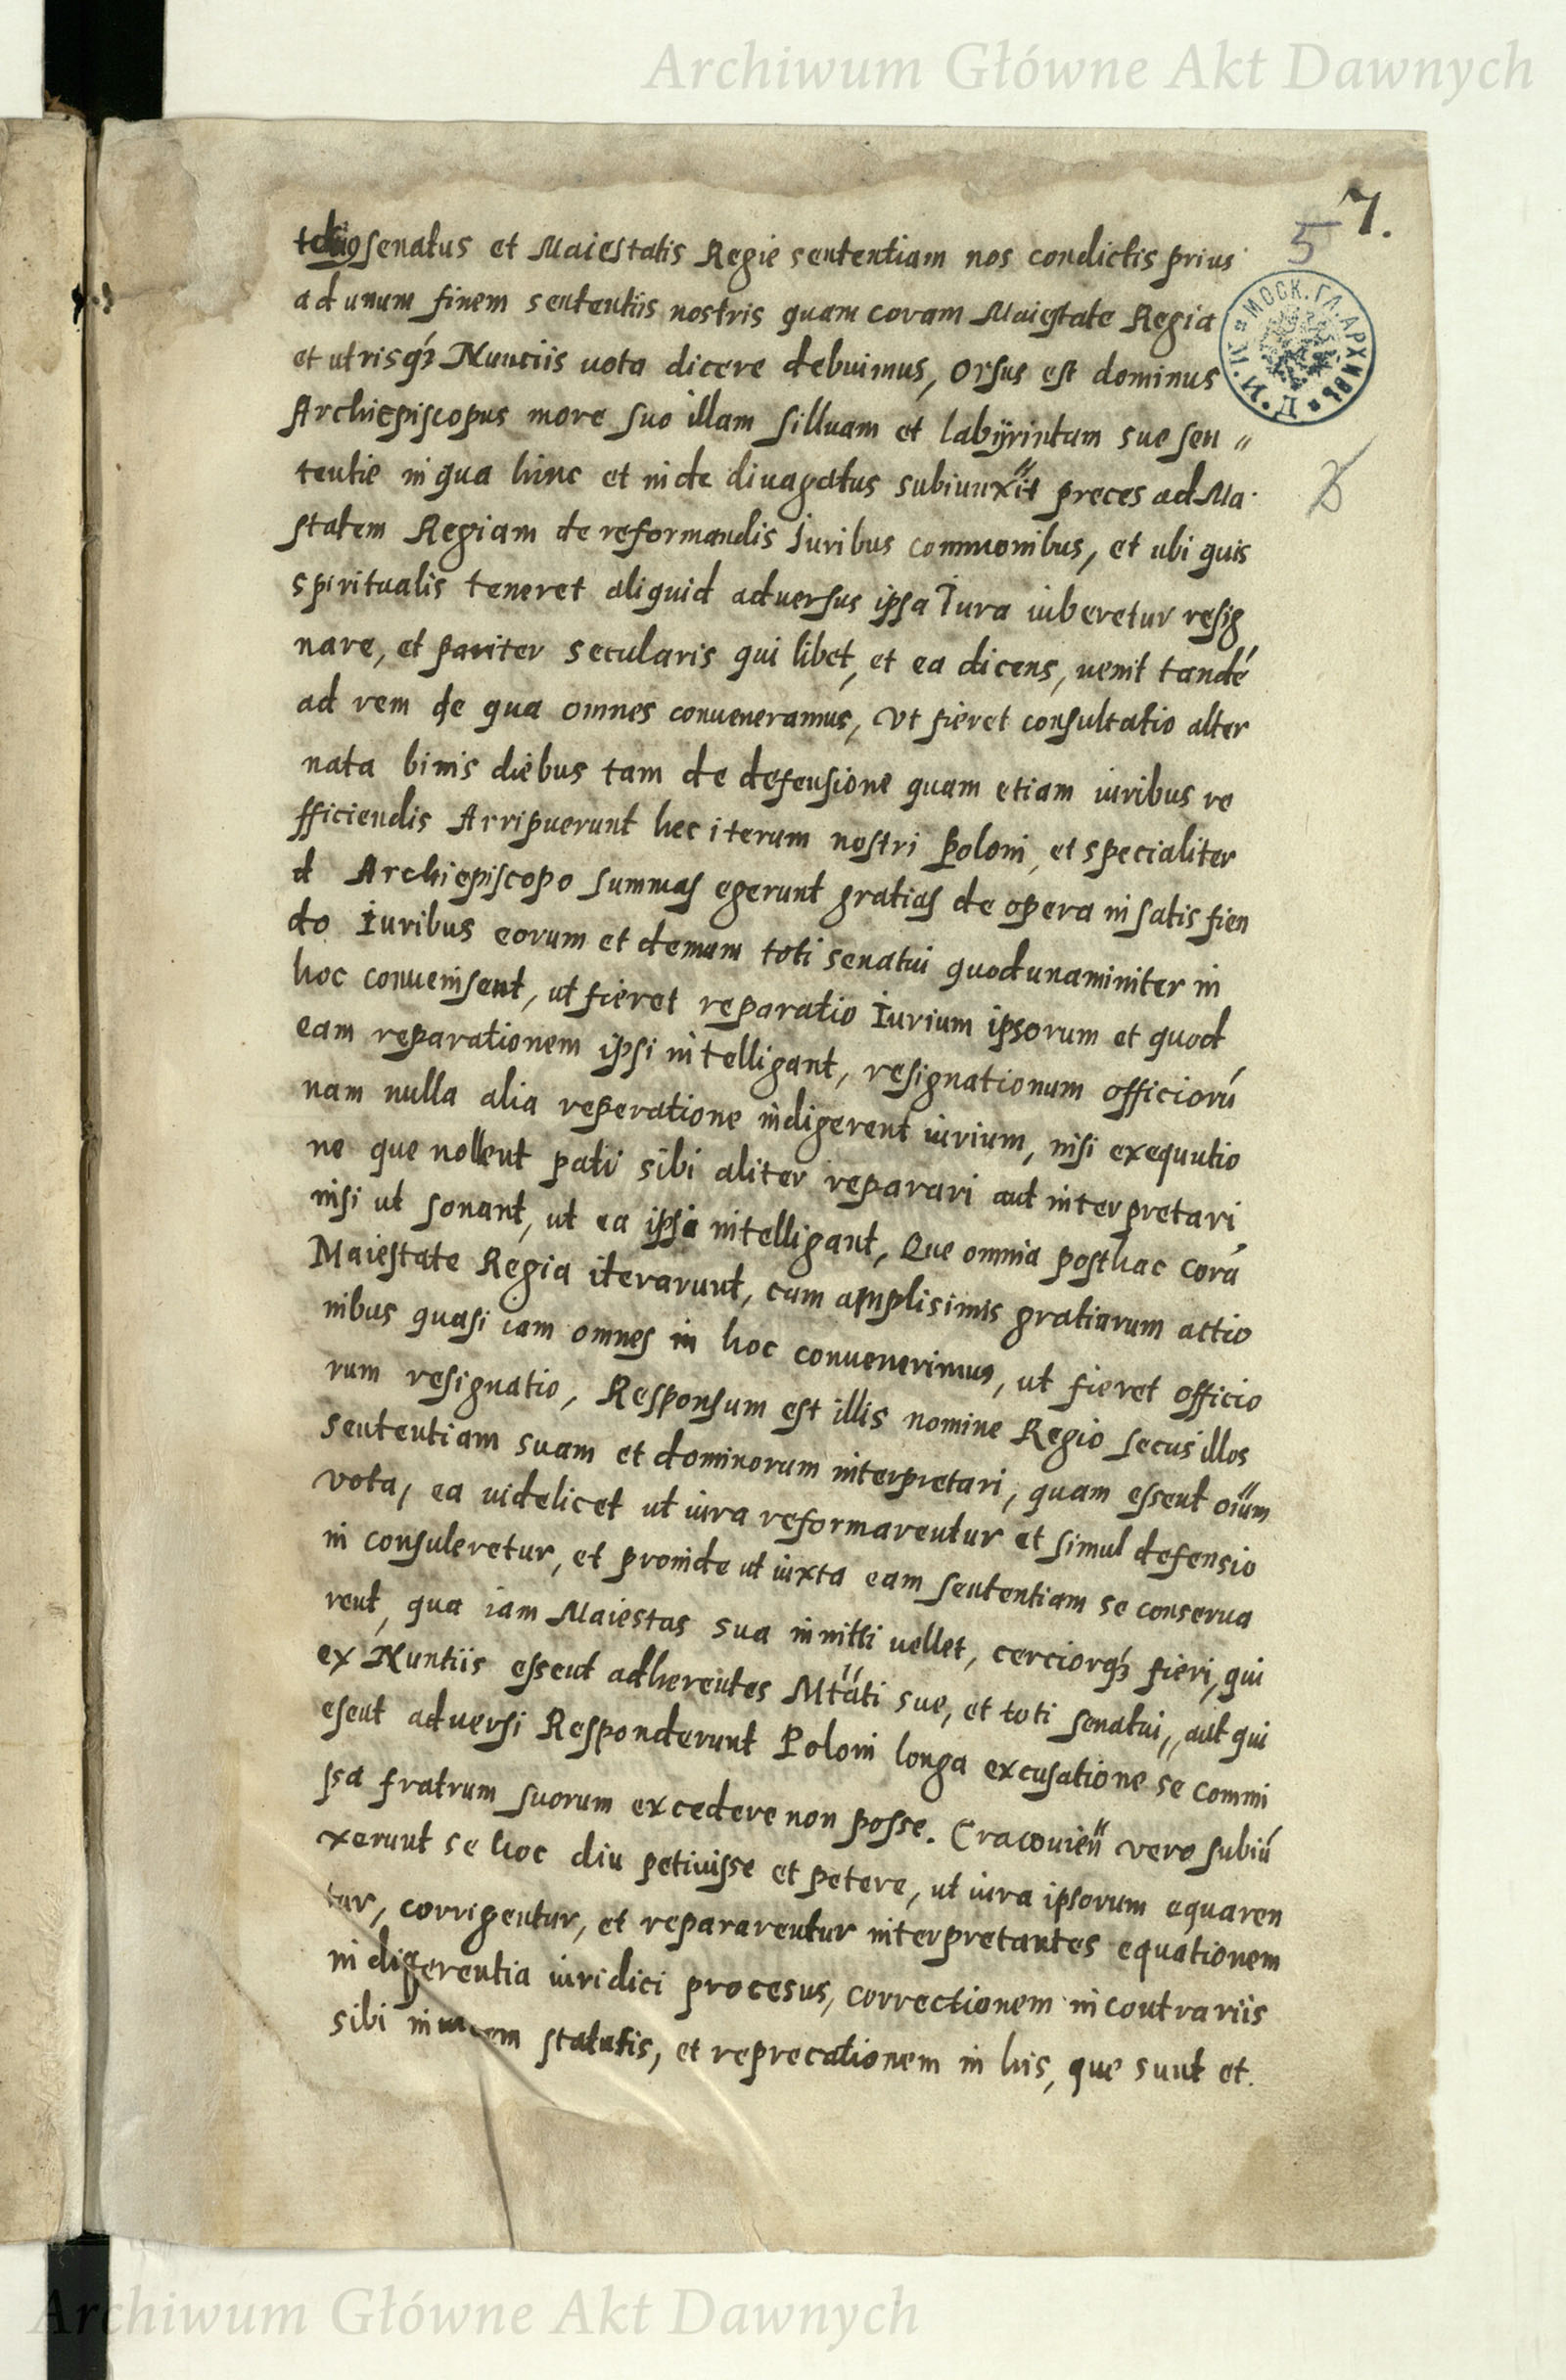 Archiwum Główne Akt Dawnych
7.
5
senatus et Maiestatis Regie sententiam nos condictis prius
ad unum finem sententiis nostris quam coram Maiestate Regia
et utrisqȝ Nunciis uota dicere debuimus, Orsus est dominus
Archiepiscopus more suo illam silluam et labÿrintum sue sen〃
tentie in qua hinc et inde diuagatus subiunxit preces ad Ma·
statem Regiam de reformandis Iuribus communibus, et ubi quis
spiritualis teneret aliquid aduersus ipsa Iura iuberetur resig
nare, et pariter secularis qui libet, et ea dicens, uenit tandé
ad rem de qua omnes conueneramus, Ut fieret consultatio alter
nata binis diebus tam de defensione quam etiam iuribus re
fficiendis Arripuerunt hec iterum nostri Poloni, et specialiter
d Archiepiscopo summas egerunt gratias de opera in satis fien
do Iuribus eorum et demum toti senatui quod unaminiter in
hoc conuenissent, ut fieret reparatio Iurium ipsorum et quod
eam reparationem ipsi intelligant, resignationum officiorú
nam nulla alia reperatione indigerent iurium, nisi exequutio
ne que nollent pati sibi aliter reparari aut interpretari,
nisi ut sonant, ut ea ipsa intelligant, Que omnia posthac corá
Maiestate Regia iterarunt, cum amplisimis gratiarum actio
nibus quasi iam omnes in hoc conuenerimus, ut fieret officio
rum resignatio, Responsum est illis nomine Regio secus illos
sententiam suam et dominorum interpretari, quam essent oium
vota, ea uidelicet ut iura reformarentur et simul defensio
ni consuleretur, et proinde ut iuxta eam sententiam se conserua
rent, qua iam Maiestas sua inniti uellet, cerciorqȝ fieri, qui
ex Nuntiis essent adherentes Mtati sue, et toti senatui, aut qui
esent aduersi Responderunt Poloni longa excusatione se commi
ssa fratrum suorum excedere non posse. Cracouień vero subiú
xerunt se hoc diu petiuisse et petere, ut iura ipsorum equaren
tur, corrigentur, et repararentur interpretantes equationem
in digerentia iuridici procesus, correctionem in contrariis
sibi inuicem statutis, et reprecationem in his, que sunt et.
М.Г.А.М.И.Д.
Archiwum Główne Akt Dawnych